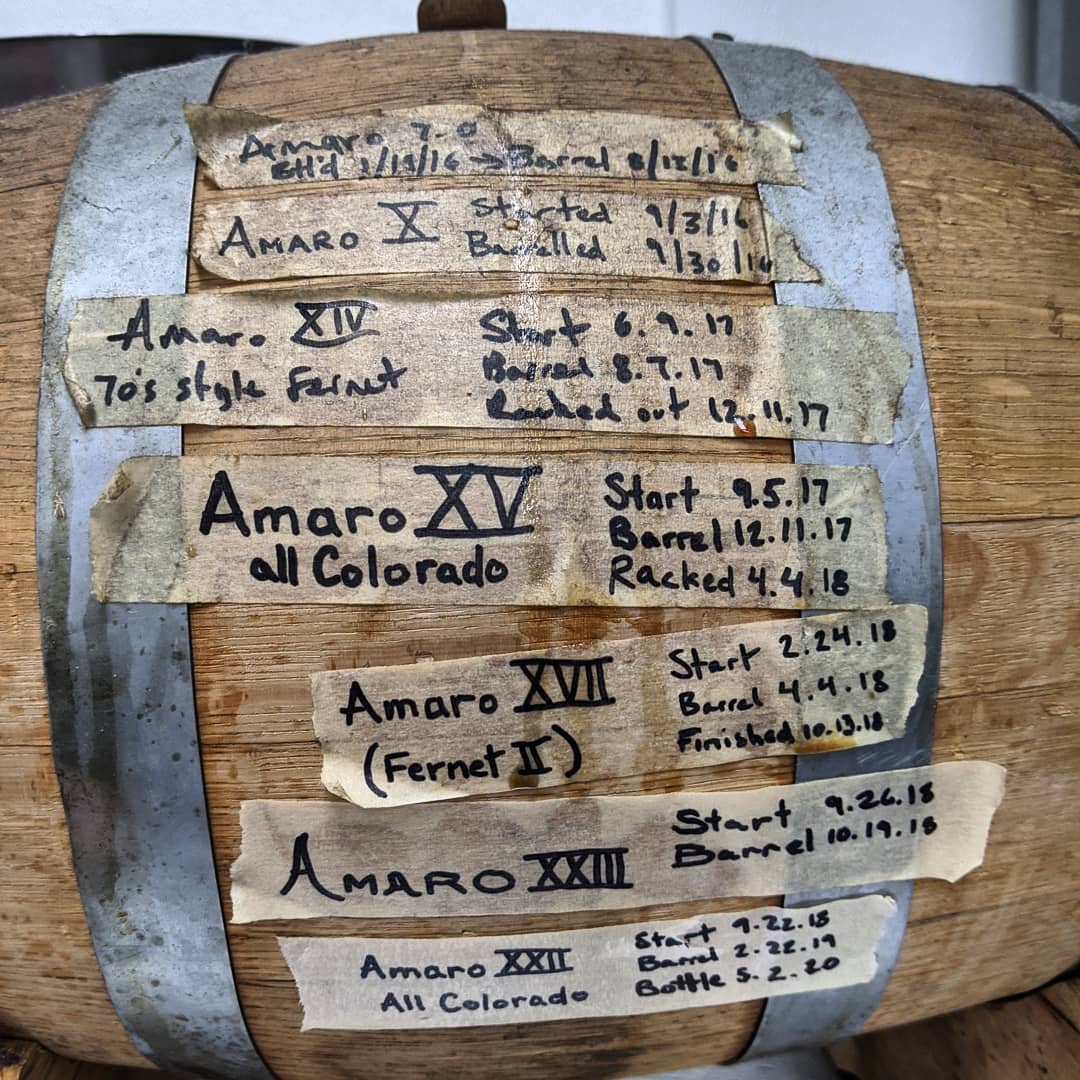 Amaro 7.0
→ Barrel
AMARO X Started 9/3/16
Barrelled 9/30/16
Amaro XIV Start 6.9.17
70's style Fernet Barrel 8.7.17
Racked out 12.11.17
Amaro XV Start 9.5.17
all Colorado Barrel 12.11.17
Racked 4.4.18
Amaro XVII Start 2.24.18
(Fernet II) Barrel 4.4.18
Finished 10.13.18
AMARO XXIII Start 9.26.18
Barrel 10.19.18
Amaro XXII Start 9.22.18
All Colorado Barrel 2.22.19
Bottle 5.2.20